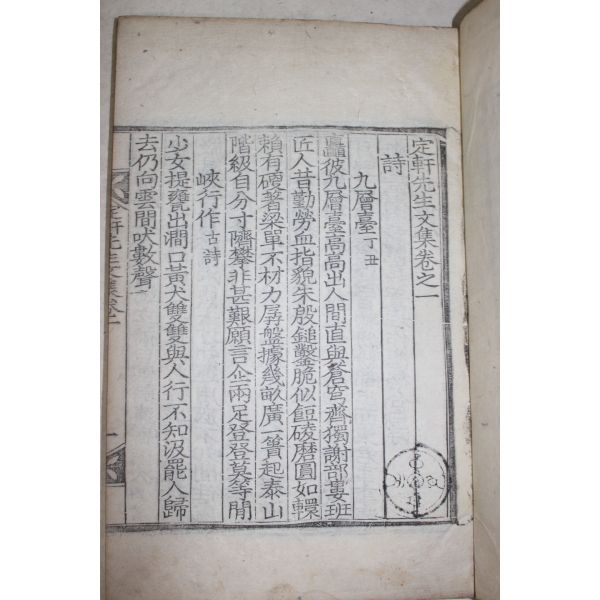 定軒先生文集卷之一
詩
九層臺 丁丑
矗彼九層臺高高出人間直與蒼穹齊獨謝部婁班
匠人昔勤勞血指貌朱殷鎚鑿脆似餖磋磨圓如轘
賴有礎著梁單不材力孱盤據幾畝廣一簣起泰山
階級自分寸隮攀非甚艱願言企兩足登登莫等閒
峽行作 古詩
少女提甕出澗口黃犬雙雙與人行不知汲罷人歸
去仍向雲間吠數聲
定軒先生文集卷一
一